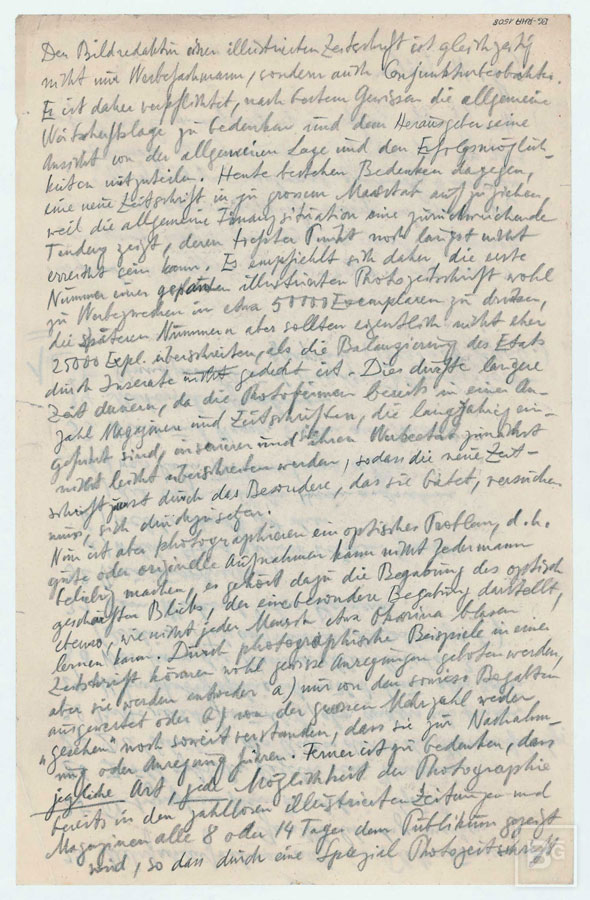 BG-RHA 1508
Der Bildredaktör einer illustrierten Zeitschrift ist gleichzeitig
nicht nur Werbefachmann, sondern auch Conjunkturbeobachter.
Er ist daher verpflichtet, nach bestem Gewissen die allgemeine
Wirtschaftslage zu bedenken und dem Herausgeber seine
Ansicht von der allgemeinen Lage und den Erfolgsmöglich-
keiten mitzuteilen. Heute bestehen Bedenken dagegen,
eine neue Zeitschrift in zu grossem Masstab aufzuziehen
weil die allgemeine Finanzsituation eine zurückweichende
Tendenz zeigt, deren tiefster Punkt noch längst nicht
erreicht sein kann. Es empfiehlt sich daher, die erste
Nummer einer geplanten illustrierten Photozeitschrift wohl
zu Werbezwecken in etwa 50000 Exemplaren zu drucken,
die späteren Nummern aber sollten eigentlich nicht eher
25000 Expl. überschreiten, als die Balanzierung des Etats
durch Inserate nicht gedeckt ist. Dies dürfte längere
Zeit dauern, da die Photofirmen bereits in einer An-
zahl Magazinen und Zeitschriften, die langjährig ein-
geführt sind, inserieren und ihren Werbeetat zunächst
nicht leicht überschreiten werden, sodass die neue Zeit-
schrift erst durch das Besondere, das sie bietet, versuchen
muss, sich durchzusetzen.
Nun ist aber photographieren ein optisches Problem, d.h.
gute oder originelle Aufnahmen kann nicht Jedermann
beliebig machen, es gehört dazu die Begabung des optisch
geschärften Blicks, der eine besondere Begabung darstellt,
ebenso, wie nicht jeder Mensch etwa Okarina blasen
lernen kann. Durch photographische Beispiele in einer
Zeitschrift können wohl gewisse Anregungen geboten werden,
aber sie werden entweder a) nur von den sowieso Begabten
ausgewertet oder b) von der grossen Mehrzahl weder
„gesehen" noch soweit verstanden, dass sie zur Nachahm-
ung oder Anregung führen. Ferner ist zu bedenken, dass
jegliche Art, jede Möglichkeit der Photographie
bereits in den zahllosen illustrierten Zeitungen und
Magazinen alle 8 oder 14 Tage dem Publikum gezeigt
wird, so dass durch eine Spezial Photozeitschrift
BG